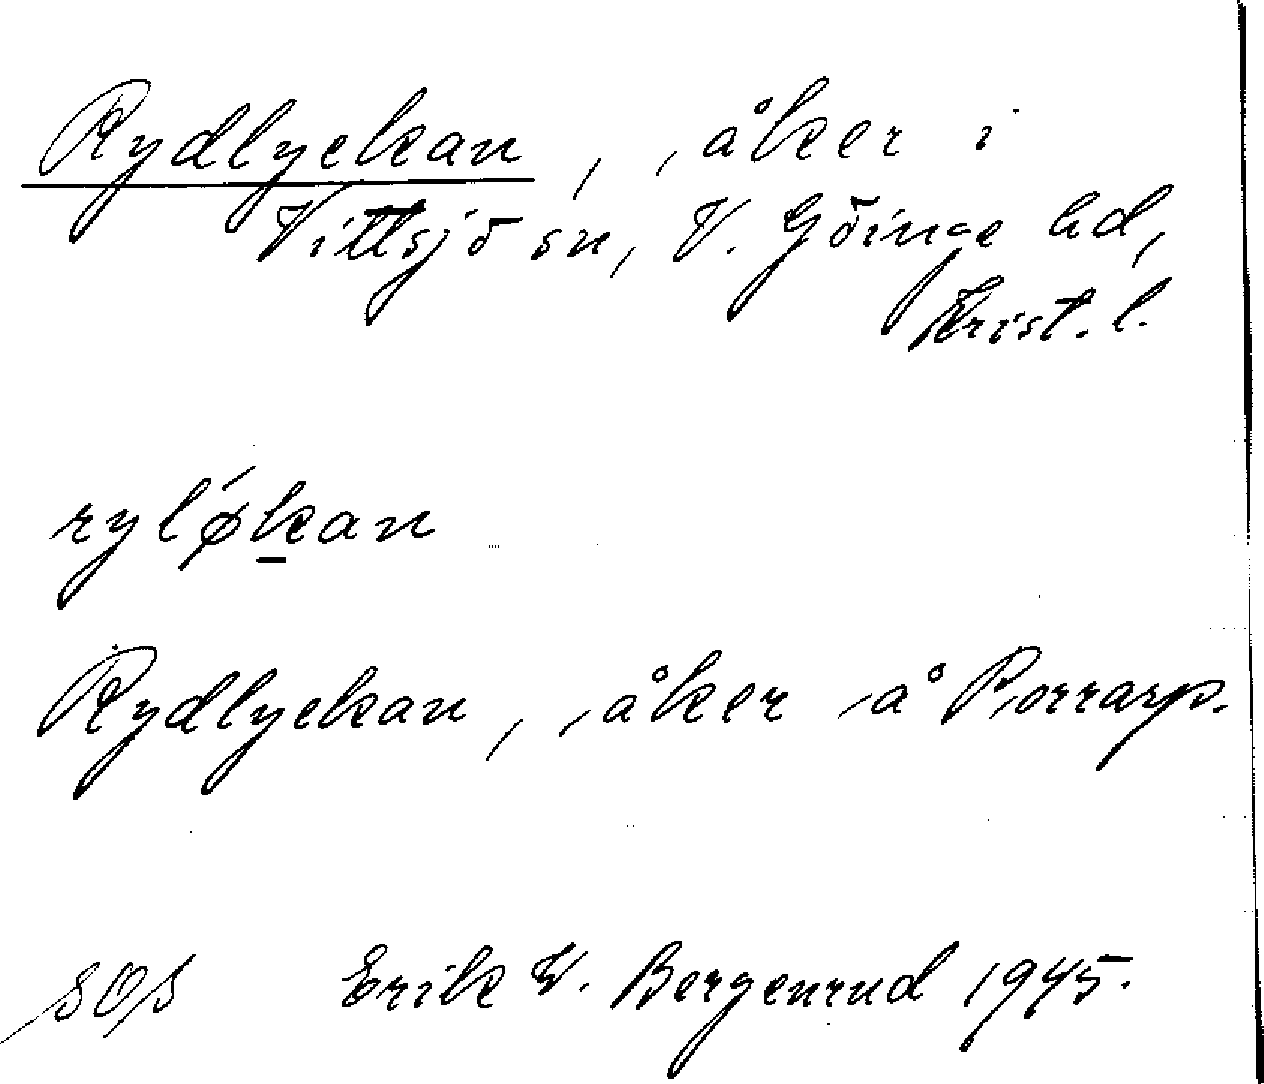 Rydlyckan, åker i
Vittsjö sn, V. Göinge hd,
Krist. l.
rylǿkan
Rydlyckan, åker å Porrarp.
SOS Erik W. Bergenrud 1945.